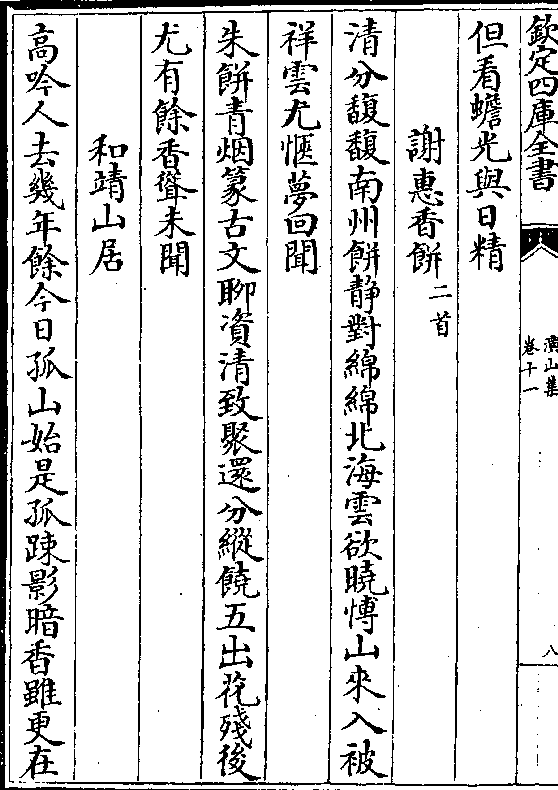 欽定四庫全書
演山集
卷十一
八
但看蟾光與日精
謝惠香餅二首
清分馥馥南州餅静對綿綿北海雲欲曉愽山來入被
祥雲尤愜夢回聞
朱餅青烟篆古文聊資清致聚還分縱饒五出花殘後
尤有餘香聳未聞
和靖山居
高吟人去幾年餘今日孤山始是孤踈影暗香雖更在